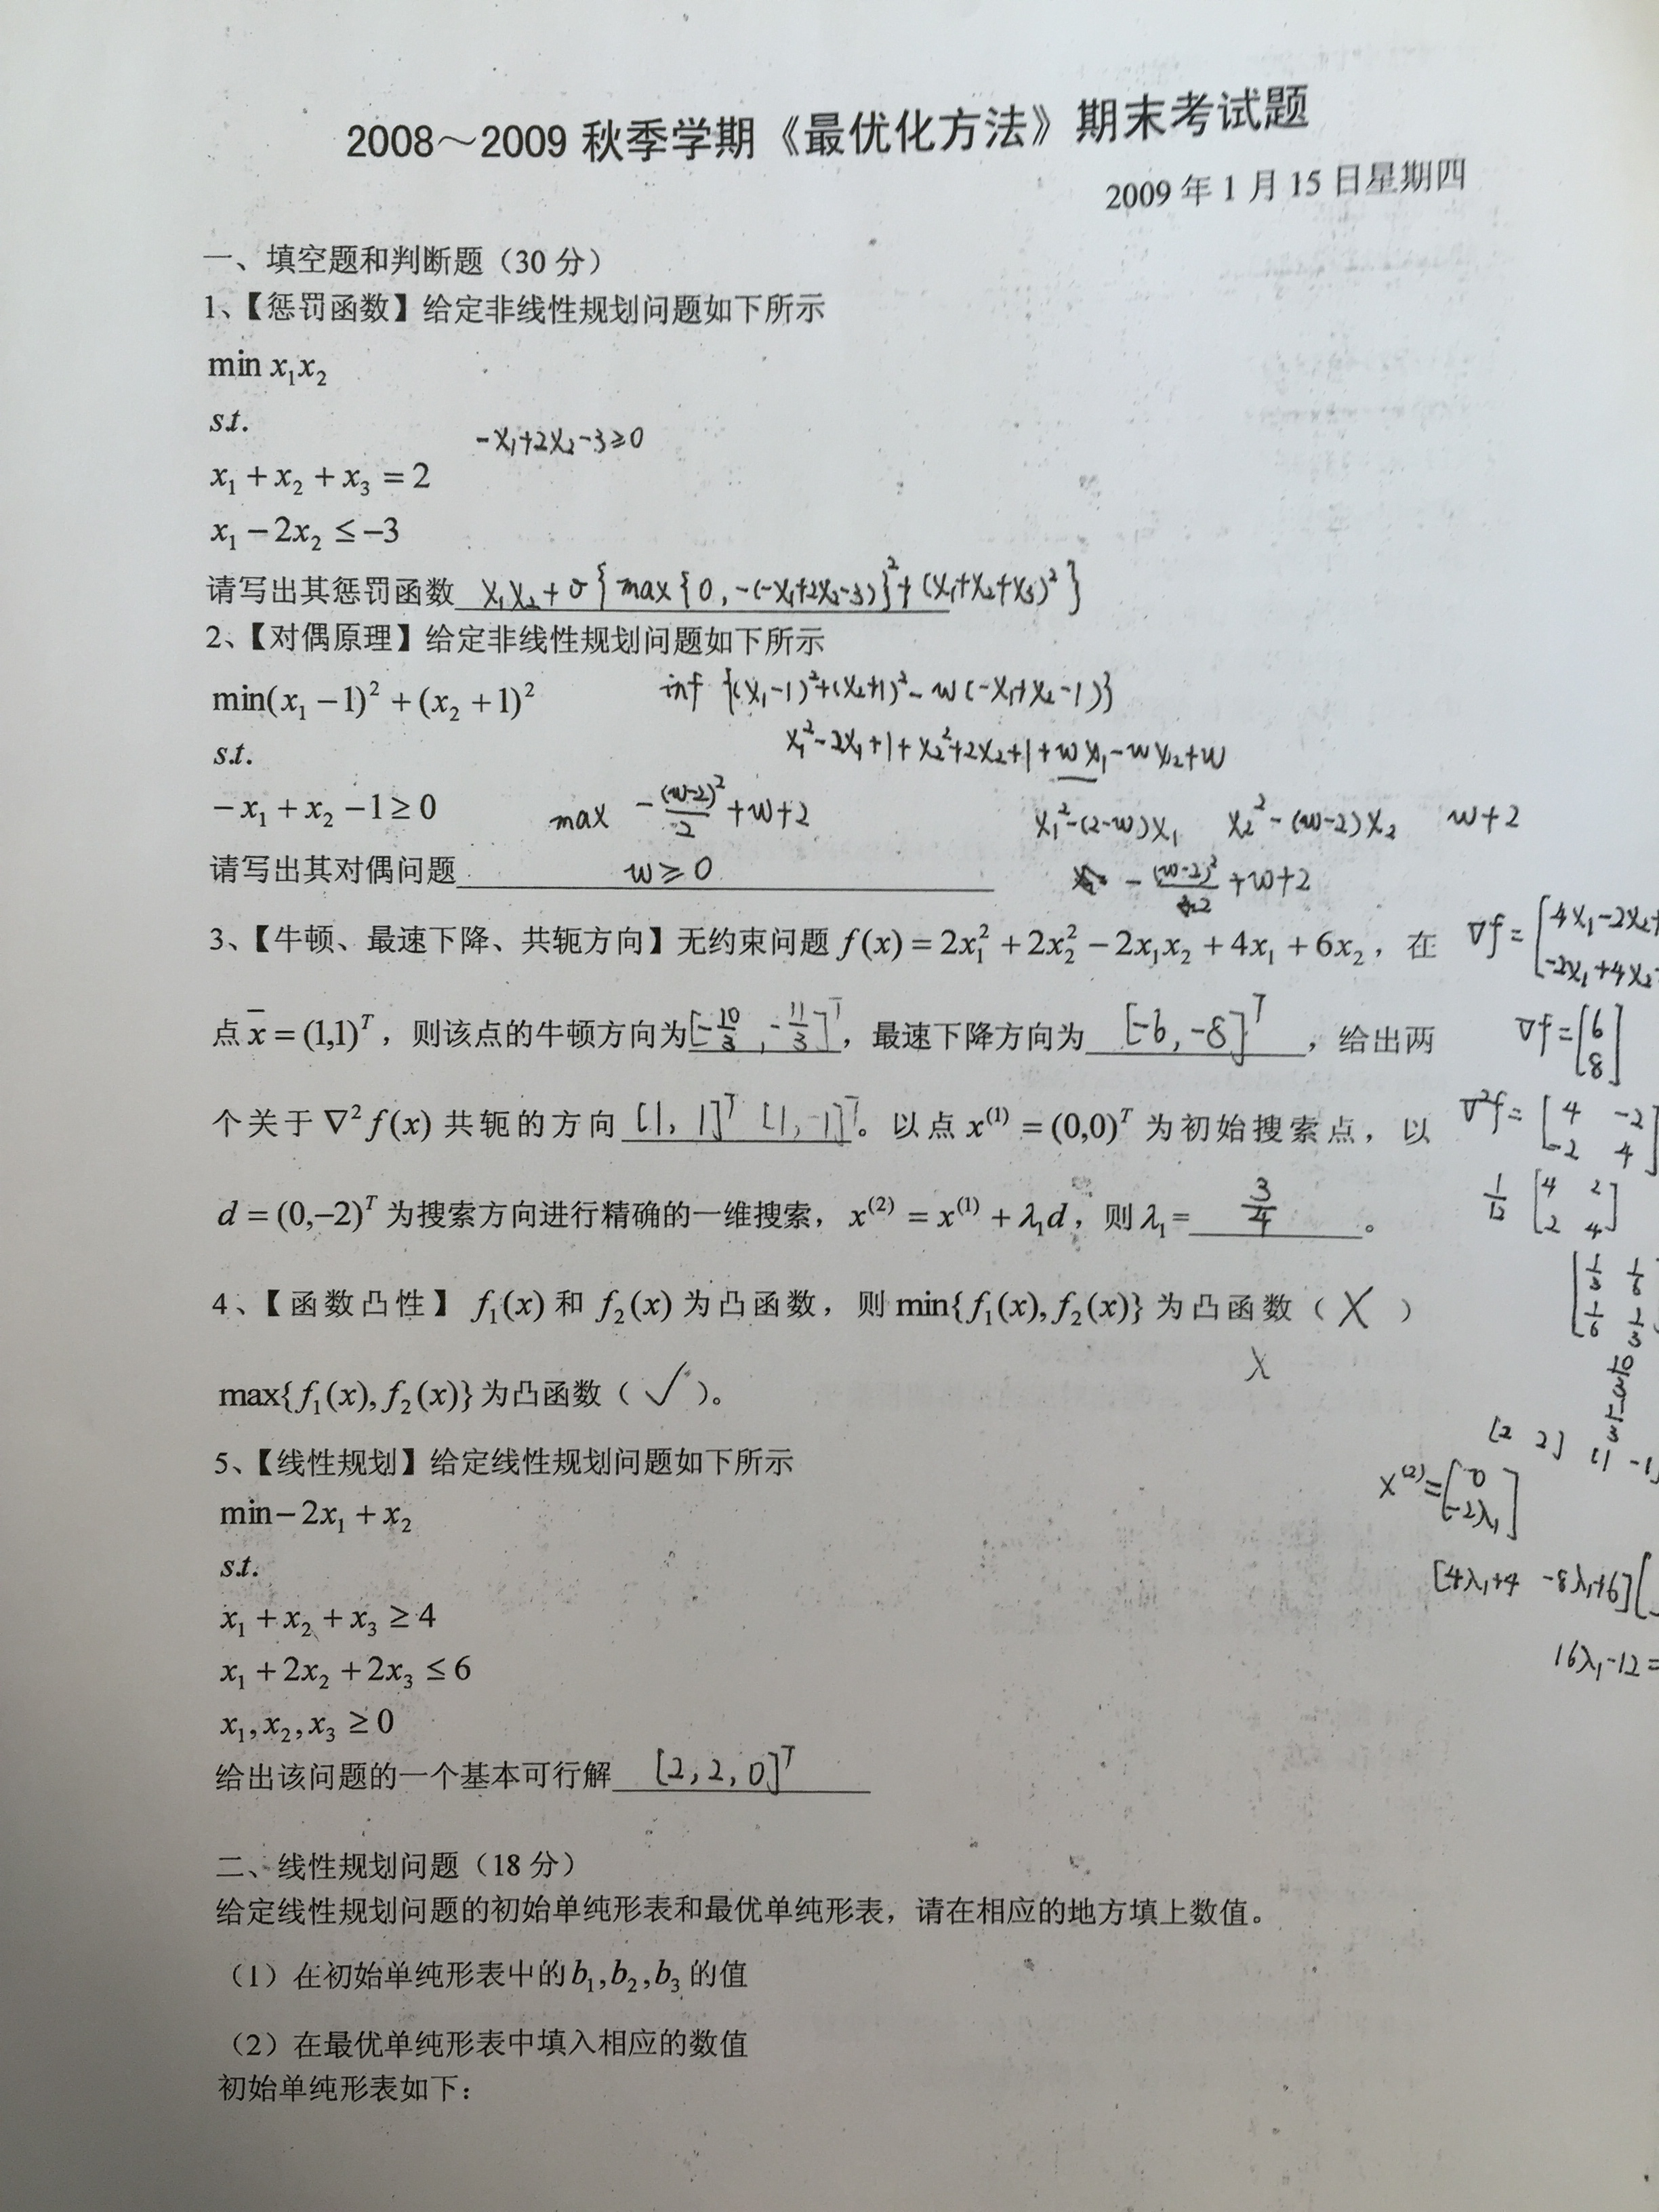 2008～2009 秋季学期《最优化方法》期末考试题
2009 年 1 月 15 日星期四
一、填空题和判断题（30 分）
1、【惩罚函数】给定非线性规划问题如下所示
min x₁x₂
s.t.
-x₁+2x₂-3≥0
x₁ + x₂ + x₃ = 2
x₁ − 2x₂ ≤ −3
请写出其惩罚函数 x₁x₂+σ{max{0,-(-x₁+2x₂-3)}²+(x₁+x₂+x₃)²}
2、【对偶原理】给定非线性规划问题如下所示
min(x₁ − 1)² + (x₂ + 1)²
inf {(x₁-1)²+(x₂+1)²-w(-x₁+x₂-1)}
s.t.
x₁²-2x₁+1+x₂²+2x₂+1+wx₁-wx₂+w
− x₁ + x₂ − 1 ≥ 0
max -(w-2)²/2+w+2
x₁²-(2-w)x₁ x₂²-(w-2)x₂ w+2
请写出其对偶问题 w≥0
-(w-2)²/2+w+2
3、【牛顿、最速下降、共轭方向】无约束问题 f(x) = 2x₁² + 2x₂² − 2x₁x₂ + 4x₁ + 6x₂，在
∇f=[4x₁-2x₂+
-2x₁+4x₂
点 x̄ = (1,1)ᵀ，则该点的牛顿方向为[-10/3, -11/3]ᵀ，最速下降方向为 [-6,-8]ᵀ，给出两
∇f=[6
8]
个关于 ∇²f(x) 共轭的方向 [1,1]ᵀ [1,-1]ᵀ。以点 x⁽¹⁾ = (0,0)ᵀ 为初始搜索点，以
∇²f=[4 -2
-2 4]
d = (0,−2)ᵀ 为搜索方向进行精确的一维搜索，x⁽²⁾ = x⁽¹⁾ + λ₁d，则 λ₁= 3/4。
1/12 [4 2
2 4]
[1/3 1/6
1/6 1/3
4、【函数凸性】 f₁(x) 和 f₂(x) 为凸函数，则 min{f₁(x), f₂(x)} 为凸函数（ X ）
X
max{f₁(x), f₂(x)} 为凸函数（ ✓ ）。
[2 2] [1 -1]
5、【线性规划】给定线性规划问题如下所示
x⁽²⁾=[0
-2λ₁]
min− 2x₁ + x₂
s.t.
[4λ₁+4 -8λ₁+6][
x₁ + x₂ + x₃ ≥ 4
16λ₁-12=
x₁ + 2x₂ + 2x₃ ≤ 6
x₁, x₂, x₃ ≥ 0
给出该问题的一个基本可行解 [2,2,0]ᵀ
二、线性规划问题（18 分）
给定线性规划问题的初始单纯形表和最优单纯形表，请在相应的地方填上数值。
（1）在初始单纯形表中的 b₁, b₂, b₃ 的值
（2）在最优单纯形表中填入相应的数值
初始单纯形表如下：